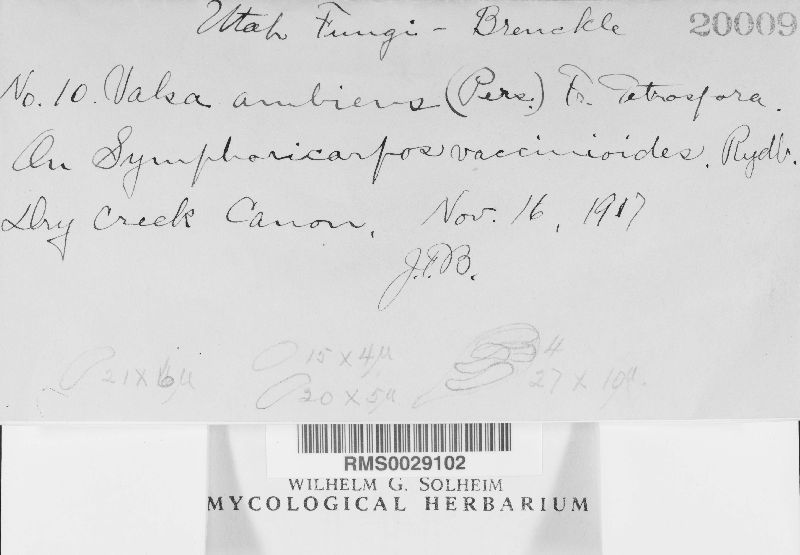 Utah Fungi - Brenckle 20009
No. 10. Valsa ambiens (Pers.) Fr. Tetraspora.
On Symphoricarpos vaccinioides. Rydb.
Dry Creek Canon, Nov. 16, 1917
J.F.B.
15 x 4µ 4
21 x 6µ 20 x 5µ 27 x 10µ.
RMS0029102
WILHELM G. SOLHEIM
MYCOLOGICAL HERBARIUM